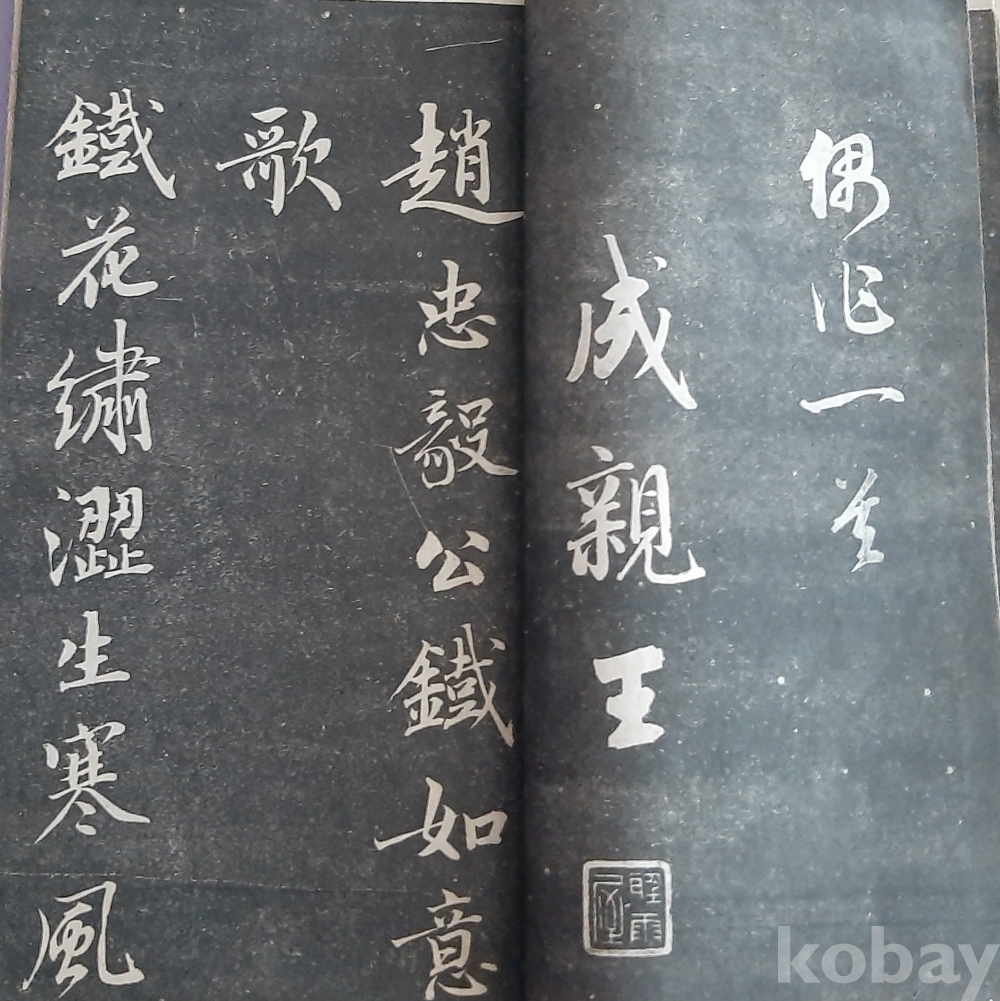 偶作一首
成親王
趙忠毅公鐵如意
歌
鐵花繡澀生寒風
kobay